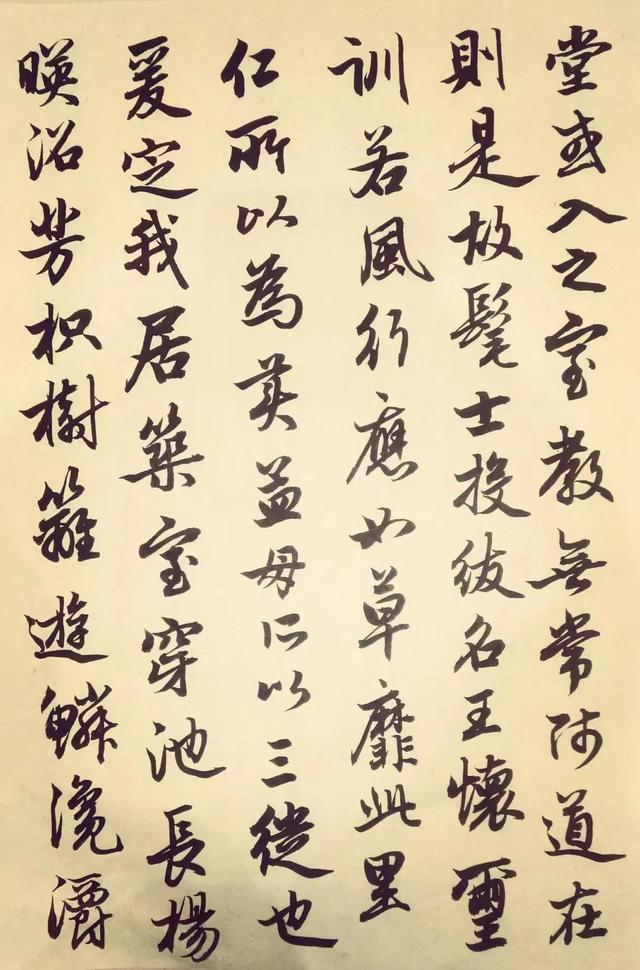 堂或入之室教無常師道在
則是故髦士投紱名王懷璽
訓若風行應如草靡此里
仁所以為美孟母所以三徙也
爰定我居築室穿池長楊
暎沼芳枳樹籬遊鱗瀺灂